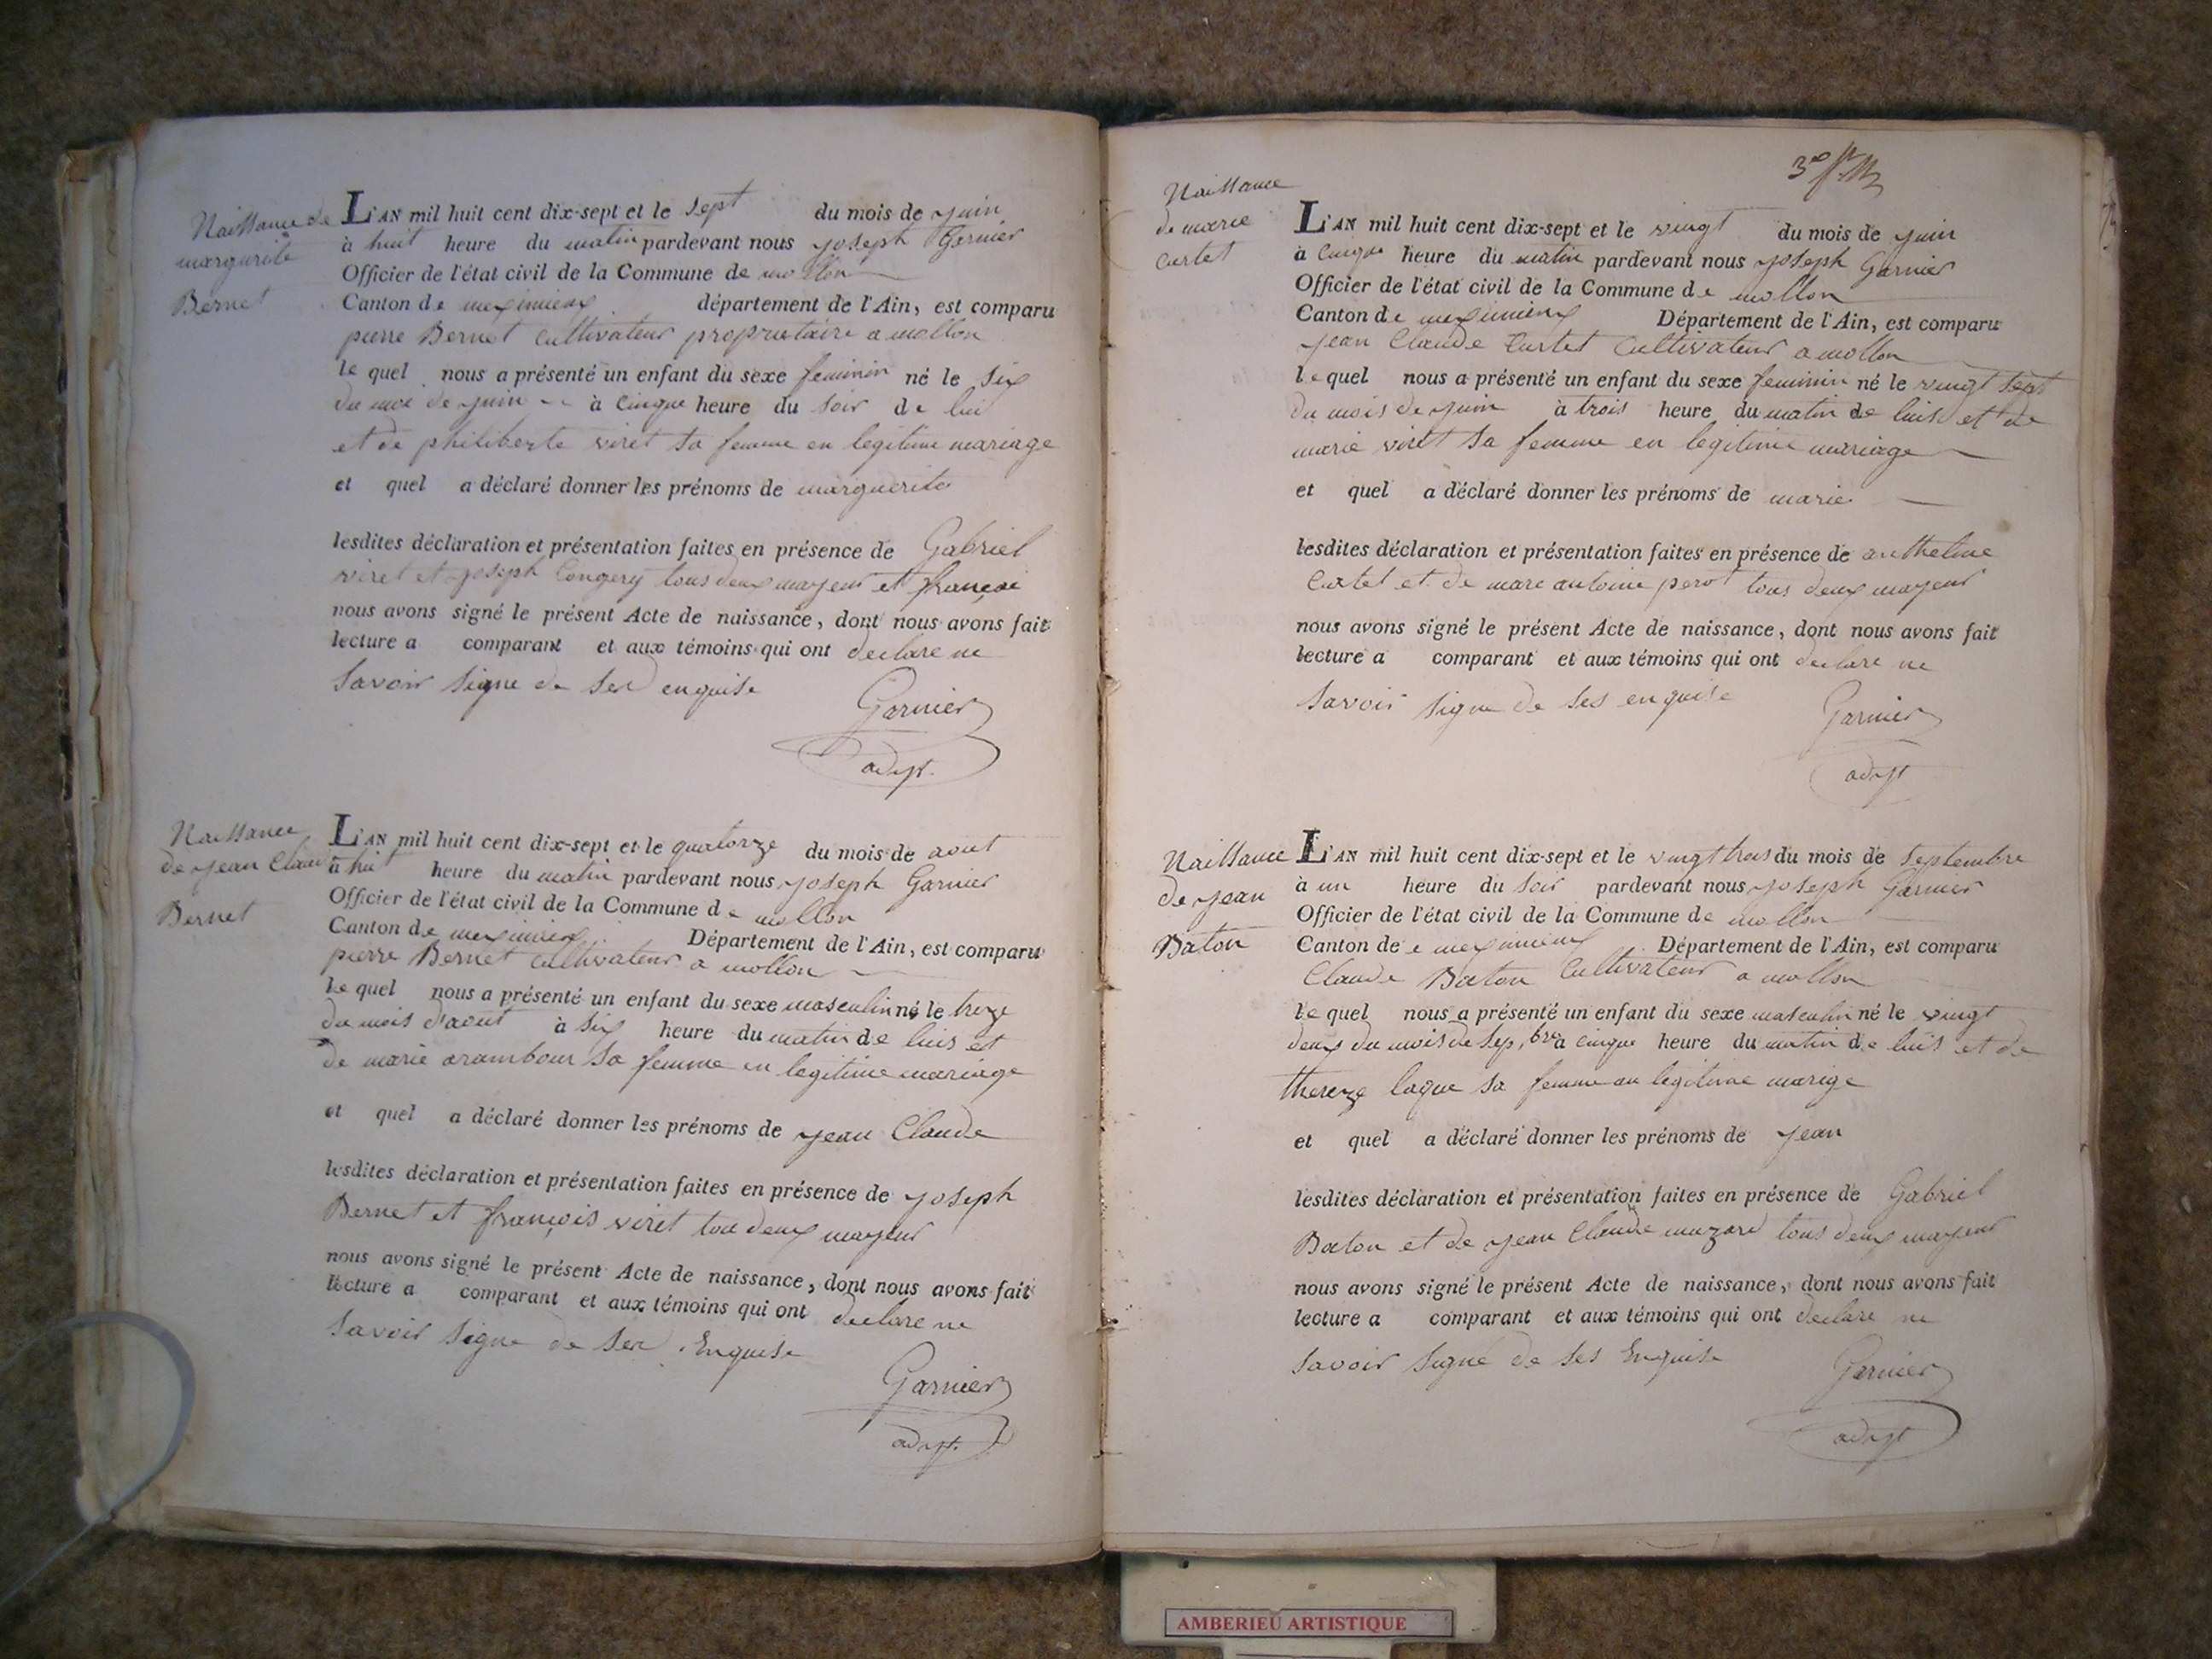 Naissance de
marguerite
Bernet
L'AN mil huit cent dix-sept et le sept du mois de juin
à huit heure du matin pardevant nous joseph Garnier
Officier de l'état civil de la Commune de mollon
Canton de meximieux département de l'Ain, est comparu
pierre Bernet cultivateur proprietaire a mollon
le quel nous a présenté un enfant du sexe feminin né le six
du moi de juin à cinque heure du soir de lui
et de philiberte viret sa femme en legitime mariage
et quel a déclaré donner les prénoms de marguerite
lesdites déclaration et présentation faites en présence de Gabriel
viret et joseph Congery tous deux mayeur et françai
nous avons signé le présent Acte de naissance, dont nous avons fait
lecture a comparant et aux témoins qui ont declare ne
savoir signe de ser enquise
Garnier
adjt.
Naissance
de jean Claude
Bernet
L'AN mil huit cent dix-sept et le quatorze du mois de aout
à huit heure du matin pardevant nous joseph Garnier
Officier de l'état civil de la Commune de mollon
Canton de meximieux Département de l'Ain, est comparu
pierre Bernet cultivateur a mollon
le quel nous a présenté un enfant du sexe masculin né le treze
du mois d'aout à six heure du matin de luis et
de marie arambour sa femme en legitime mariage
et quel a déclaré donner les prénoms de jean Claude
lesdites déclaration et présentation faites en présence de joseph
Bernet et françois viret tou deux mayeur
nous avons signé le présent Acte de naissance, dont nous avons fait
lecture a comparant et aux témoins qui ont declare ne
savoir signe de ser Enquise
Garnier
adjt.
Naissance
de marie
curtet
L'AN mil huit cent dix-sept et le vingt du mois de juin
à cinque heure du matin pardevant nous joseph Garnier
Officier de l'état civil de la Commune de mollon
Canton de meximieux Département de l'Ain, est comparu
jean Claude Curtet cultivateur a mollon
le quel nous a présenté un enfant du sexe feminin né le vingt sept
du mois de juin à trois heure du matin de luis et de
marie viret sa femme en legitime mariage
et quel a déclaré donner les prénoms de marie
lesdites déclaration et présentation faites en présence de antheline
Curtet et de marc antoine perot tous deux mayeur
nous avons signé le présent Acte de naissance, dont nous avons fait
lecture a comparant et aux témoins qui ont declare ne
savoir signe de ses enquise
Garnier
adjt
Naissance
de jean
Baton
L'AN mil huit cent dix-sept et le vingt trois du mois de septembre
à un heure du soir pardevant nous joseph Garnier
Officier de l'état civil de la Commune de mollon
Canton de e meximieux Département de l'Ain, est comparu
Claude Baton Cultivateur a mollon
le quel nous a présenté un enfant du sexe masculin né le vingt
deux du mois de sep,bre à cinque heure du matin de luis et de
thereze laque sa femme au legitime marige
et quel a déclaré donner les prénoms de jean
lesdites déclaration et présentation faites en présence de Gabriel
Baton et de jean Claude muzard tous deux mayeur
nous avons signé le présent Acte de naissance, dont nous avons fait
lecture a comparant et aux témoins qui ont declare ne
savoir signé de ses Enquise
Garnier
adjt
AMBERIEU ARTISTIQUE